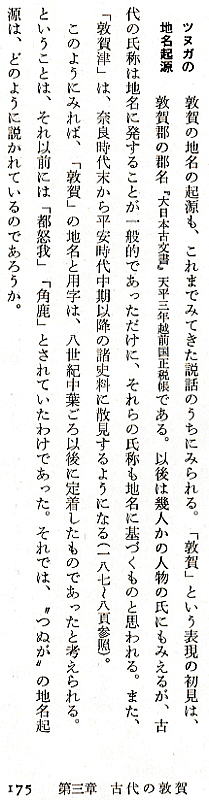 ツヌガの
地名起源
敦賀の地名の起源も、これまでみてきた説話のうちにみられる。「敦賀」という表現の初見は、
敦賀郡の郡名『大日本古文書』天平三年越前国正税帳である。以後は幾人かの人物の氏にもみえるが、古
代の氏称は地名に発することが一般的であっただけに、それらの氏称も地名に基づくものと思われる。また、
「敦賀津」は、奈良時代末から平安時代中期以降の諸史料に散見するようになる(一八七〜八頁参照)。
このようにみれば、「敦賀」の地名と用字は、八世紀中葉ごろ以後に定着したものであったと考えられる。
ということは、それ以前には「都怒我」「角鹿」とされていたわけであった。それでは、〝つぬが〟の地名起
源は、どのように説かれているのであろうか。
175 第三章 古代の敦賀